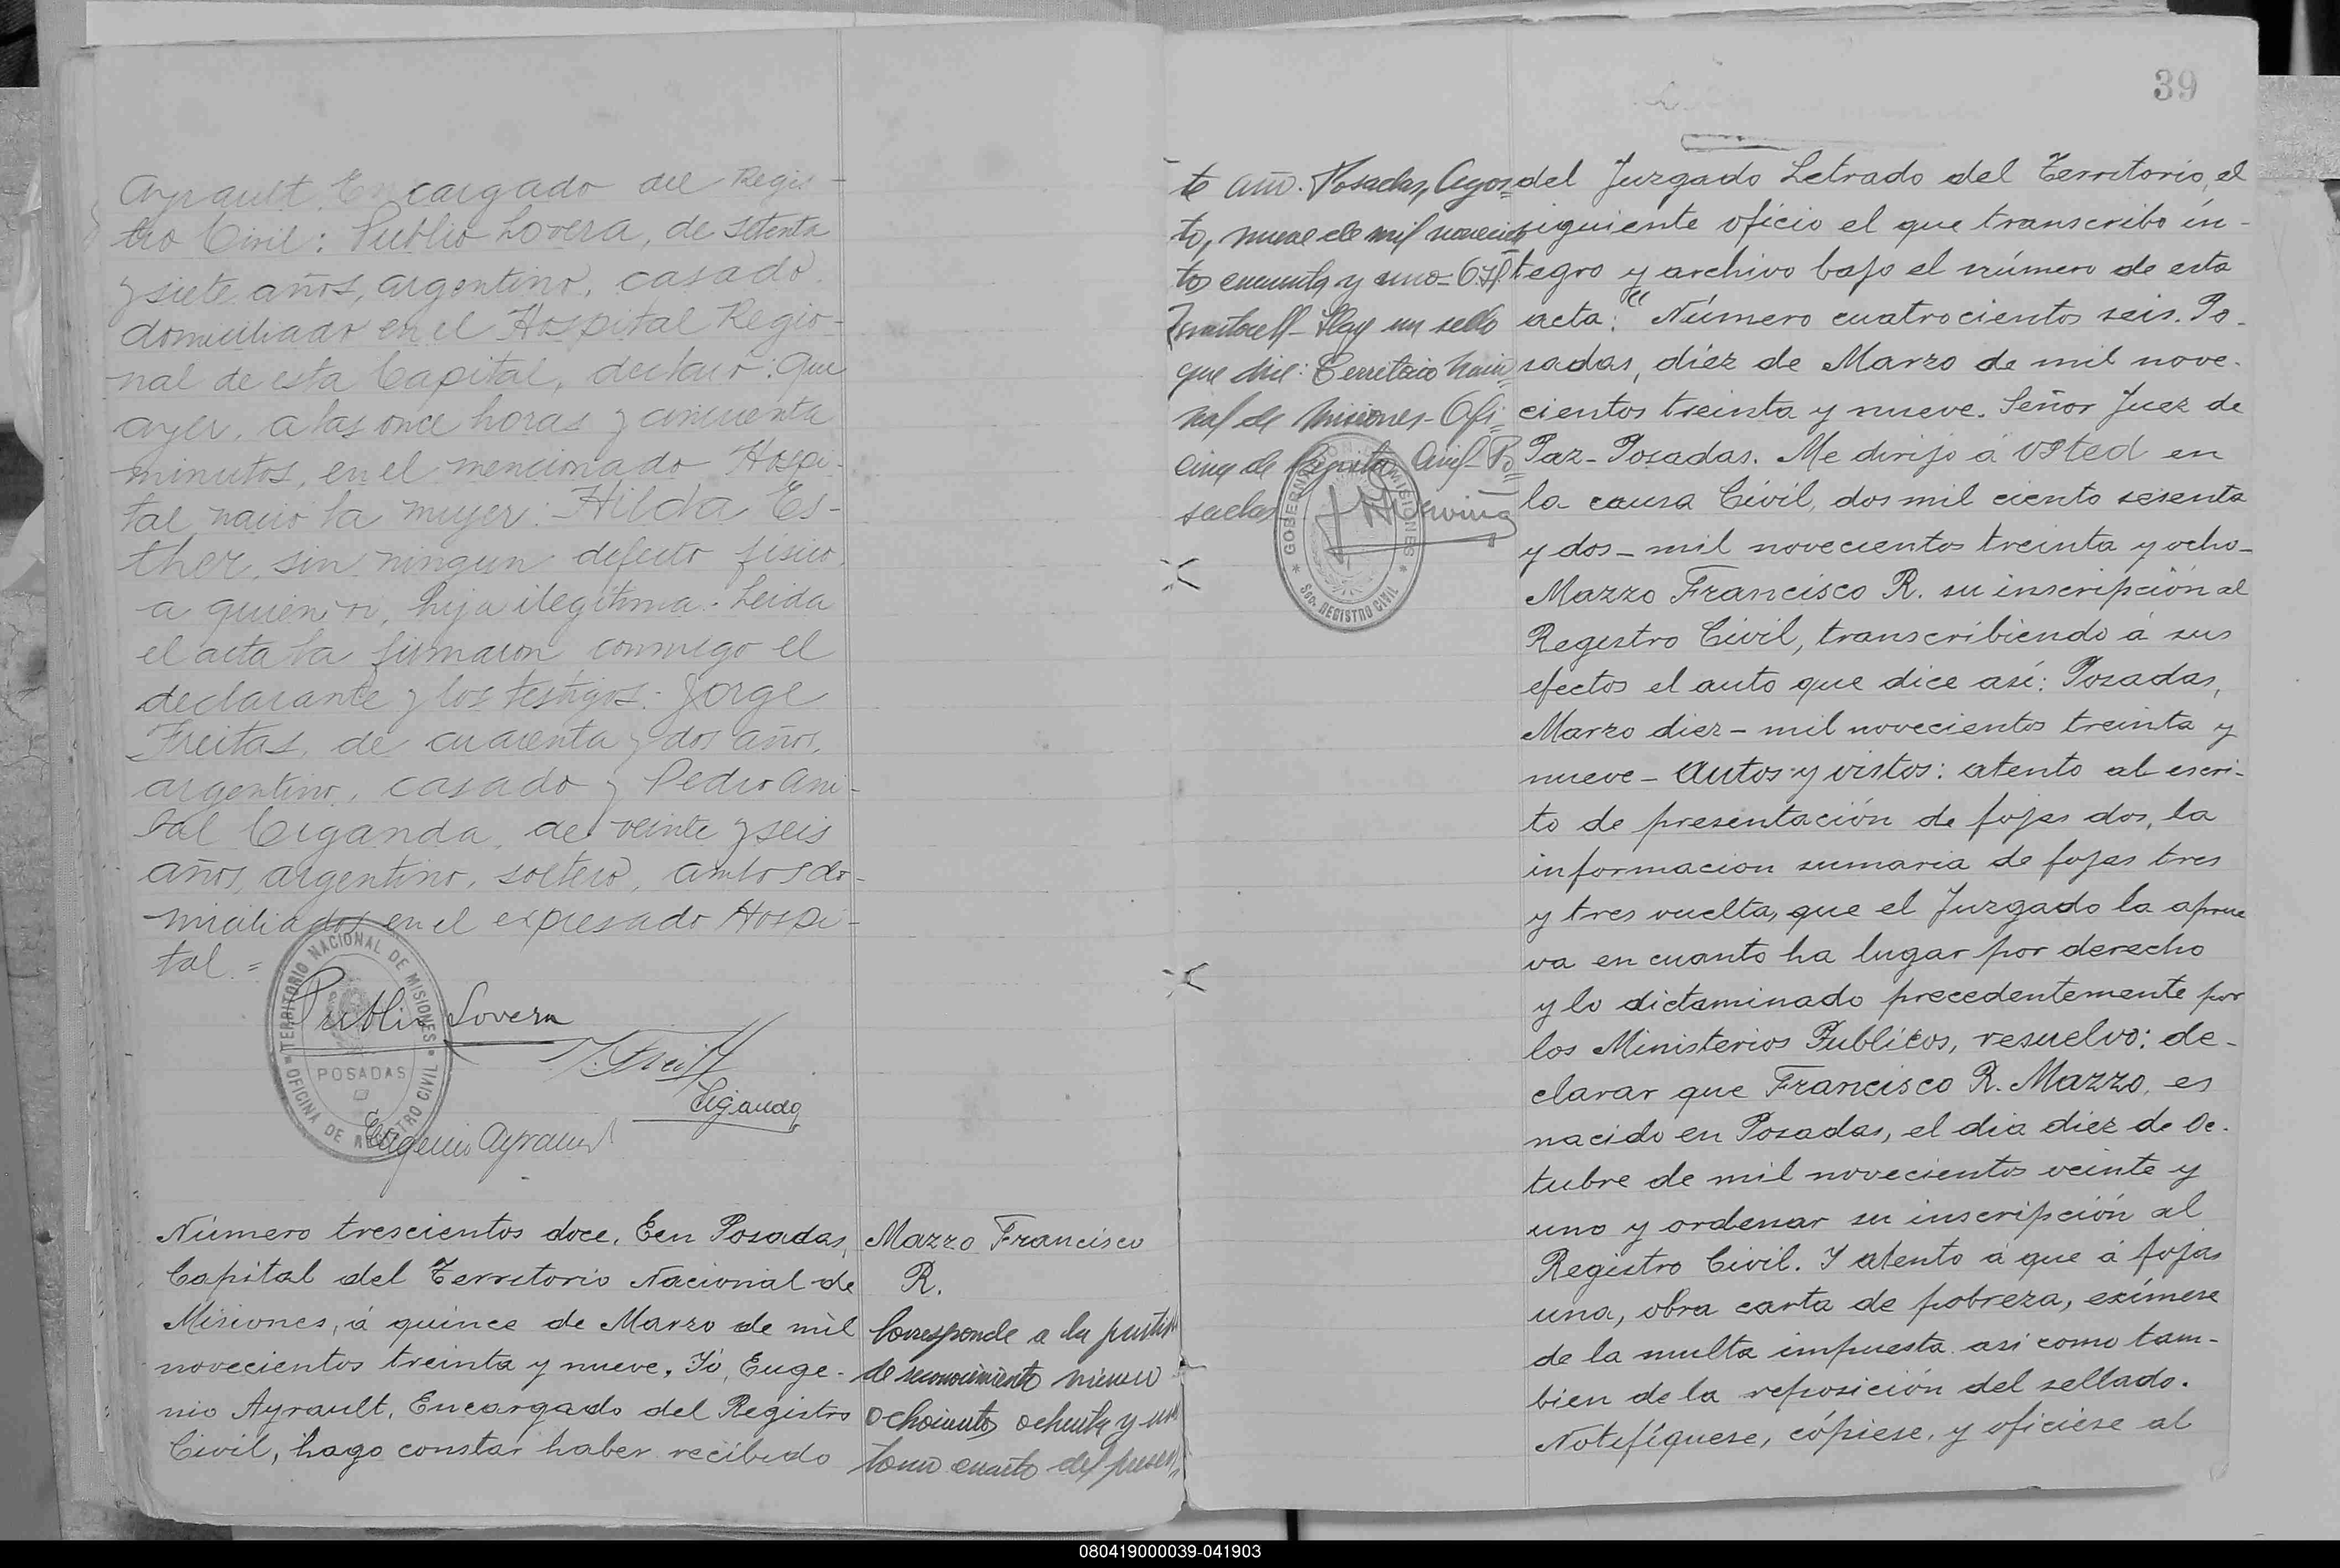 Ayrault, Encargado del Regis-
tro Civil: Publio Lovera, de setenta
y siete años, argentino, casado,
domiciliado en el Hospital Regio-
nal de esta Capital, declaró: Que
ayer, a las once horas y cincuenta
minutos, en el mencionado Hospi-
tal nació la mujer: Hilda Es-
ther, sin ningun defecto fisico,
a quien vi, hija ilegítima. Leida
el acta la firmaron conmigo el
declarante y los testigos: Jorge
Freitas, de cuarenta y dos años,
argentino, casado y Pedro Ani-
bal Ciganda, de veinte y seis
años, argentino, soltero, ambos do-
miciliados en el expresado Hospi-
tal.=
TERRITORIO NACIONAL DE MISIONES
POSADAS
OFICINA DE REGISTRO CIVIL
Publio Lovera
J. Freitas
Ciganda
Eugenio Ayrault
Número trescientos doce. Een Posadas,
Capital del Territorio Nacional de
Misiones, á quince de Marzo de mil
novecientos treinta y nueve. Yó, Euge-
nio Ayrault, Encargado del Registro
Civil, hago constar haber recibido
Mazzo Francisco
R.
Corresponde a la partida
de reconocimiento número
ochocientos ochenta y uno
tomo cuarto del presen=
39
te año. Posadas, Agos=
to, nueve de mil novecien
tos cincuenta y uno-
Hay un sello
que dice: Territorio Nacio=
nal de Misiones- Ofi=
cina de Registro Civil- Po=
sadas
GOBERNACION MISIONES
Sec. REGISTRO CIVIL
del Juzgado Letrado del Territorio, el
siguiente oficio el que transcribo ín-
tegro y archivo bajo el número de esta
acta: "Número cuatrocientos seis. Po-
sadas, diéz de Marzo de mil nove-
cientos treinta y nueve. Señor Juez de
Paz- Posadas. Me dirijo á Usted en
la causa Civil, dos mil ciento sesenta
y dos- mil novecientos treinta y ocho-
Mazzo Francisco R. su inscripción al
Registro Civil, transcribiendo á sus
efectos el auto que dice así: Posadas,
Marzo diez- mil novecientos treinta y
nueve- Autos y vistos: atento al escri-
to de presentación de fojas dos, la
informacion sumaria de fojas tres
y tres vuelta, que el Juzgado la aprue
va en cuanto ha lugar por derecho
y lo dictaminado precedentemente por
los Ministerios Publicos, resuelvo: de-
clarar que Francisco R. Mazzo, es
nacido en Posadas, el dia diez de Oc-
tubre de mil novecientos veinte y
uno y ordenar su inscripción al
Registro Civil. Y atento á que á fojas
una, obra carta de pobreza, exímese
de la multa impuesta así como tam-
bien de la reposición del sellado.
Notifíquese, cópiese, y oficiese al
080419000039-041903